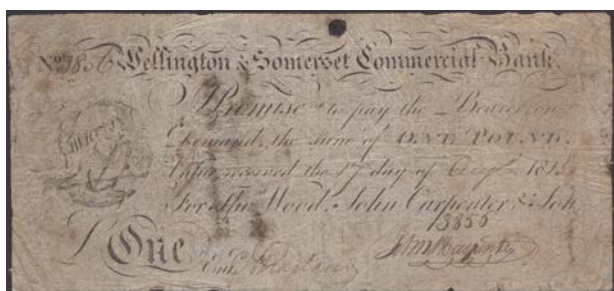 Wellington & Somerset Commercial Bank.
I Promise to pay the Bearer on
Demand, the sum of ONE POUND.
Value received the day of 181
For Tho. Wood, John Carpenter & Son
3856
£ One
Ent.
John Carpenter